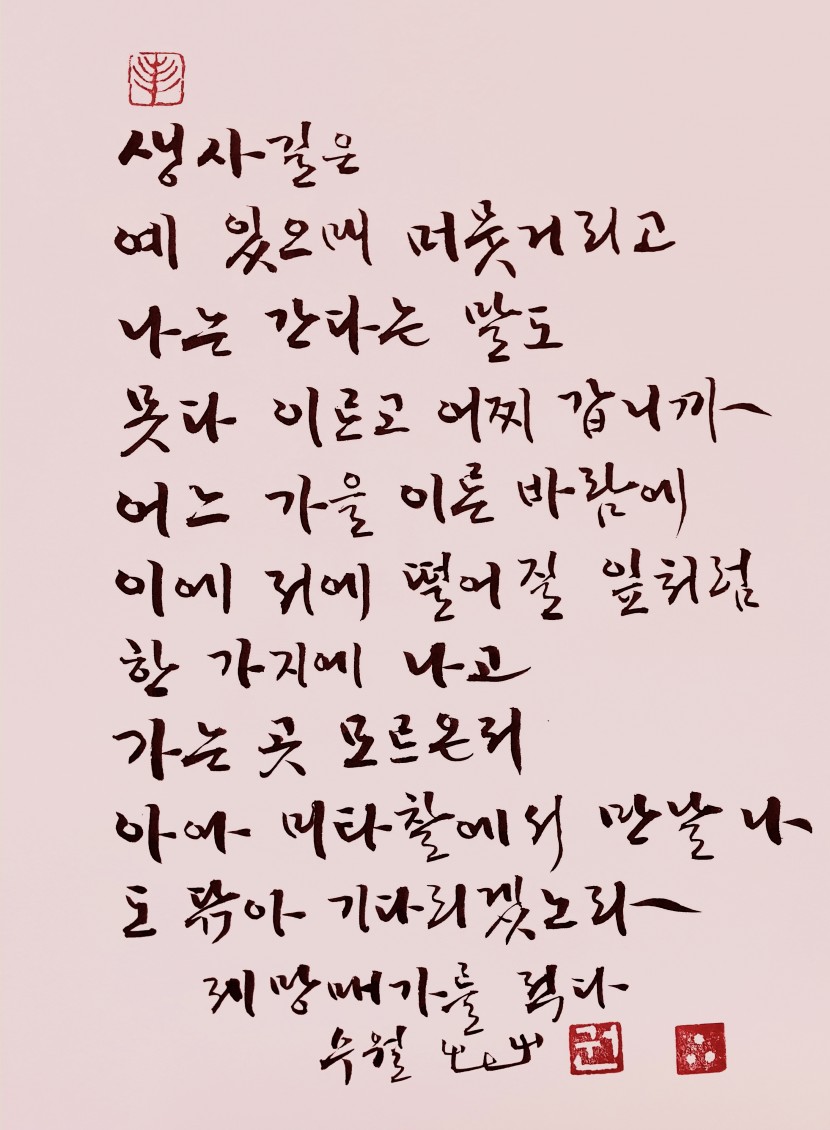 생사길은
예 있으매 머뭇거리고
나는 간다는 말도
못다 이른고 어찌 갑니까
어느 가을 이른 바람에
이에 저에 떨어질 잎처럼
한 가지에 나고
가는 곳 모르온저
아아 미타찰에서 만날 나
도 닦아 기다리겠노라
제망매가를 적다
수월
권